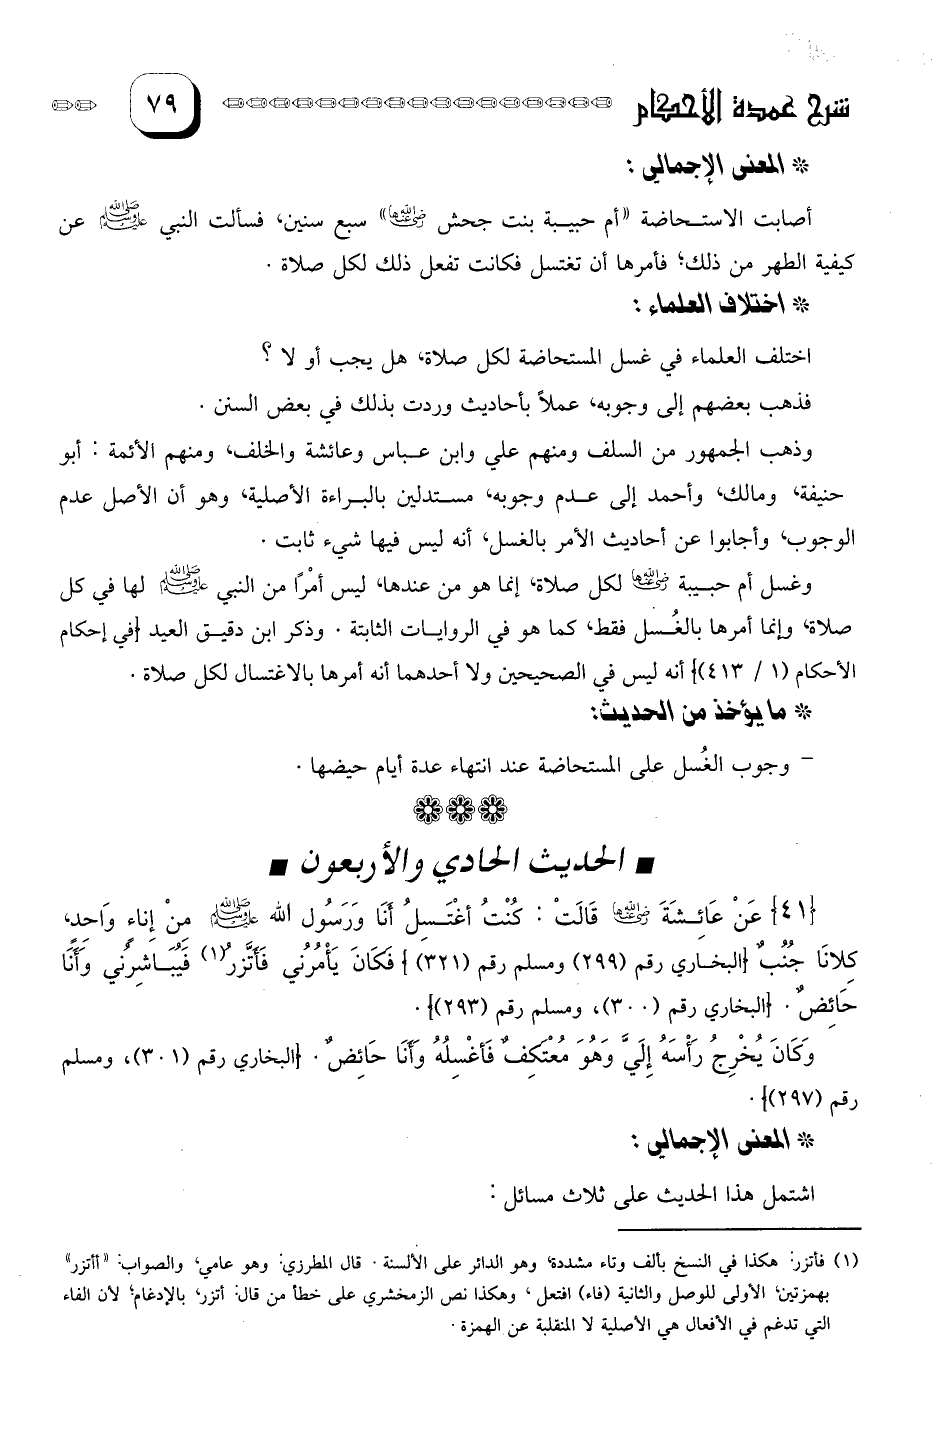 شرح عمدة الأحكام ٧٩
* المعنى الإجمالي :
أصابت الاستحاضة «أم حبيبة بنت جحش رضي الله عنها» سبع سنين، فسألت النبي ﷺ عن
كيفية الطهر من ذلك؛ فأمرها أن تغتسل فكانت تفعل ذلك لكل صلاة .
* اختلاف العلماء :
اختلف العلماء في غسل المستحاضة لكل صلاة، هل يجب أو لا ؟
فذهب بعضهم إلى وجوبه، عملاً بأحاديث وردت بذلك في بعض السنن .
وذهب الجمهور من السلف ومنهم علي وابن عباس وعائشة والخلف، ومنهم الأئمة : أبو
حنيفة، ومالك، وأحمد إلى عدم وجوبه، مستدلين بالبراءة الأصلية، وهو أن الأصل عدم
الوجوب، وأجابوا عن أحاديث الأمر بالغسل، أنه ليس فيها شيء ثابت .
وغسل أم حبيبة رضي الله عنها لكل صلاة، إنما هو من عندها، ليس أمْرًا من النبي ﷺ لها في كل
صلاة، وإنما أمرها بالغُسل فقط، كما هو في الروايات الثابتة . وذكر ابن دقيق العيد {في إحكام
الأحكام (١ / ٤١٣)} أنه ليس في الصحيحين ولا أحدهما أنه أمرها بالاغتسال لكل صلاة .
* ما يؤخذ من الحديث:
– وجوب الغُسل على المستحاضة عند انتهاء عدة أيام حيضها .
■ الحديث الحادي والأربعون ■
{٤١} عَنْ عَائِشَةَ رضي الله عنها قَالَتْ : كُنْتُ أغْتَسِلُ أنَا وَرَسُول الله ﷺ مِنْ إناء وَاحِدٍ،
كِلانَا جُنُبٌ {البخاري رقم (٢٩٩) ومسلم رقم (٣٢١)} فَكَانَ يَأْمُرُني فَأَتَّزِرُ(١) فَيُبَاشِرُني وَأَنَا
حَائِضٌ . {البخاري رقم (٣٠٠)، ومسلم رقم (٢٩٣)}.
وَكَانَ يُخْرِجُ رَأسَهُ إلَيَّ وَهُوَ مُعْتَكِفٌ فَأغْسِلُهُ وَأنَا حَائِضٌ . {البخاري رقم (٣٠١)، ومسلم
رقم (٢٩٧)}.
* المعنى الإجمالي :
اشتمل هذا الحديث على ثلاث مسائل :
(١) فأتزر: هكذا في النسخ بألف وتاء مشددة، وهو الدائر على الألسنة . قال المطرزي: وهو عامي، والصواب: «أأتزر»
بهمزتين، الأولى للوصل والثانية (فاء) افتعل ، وهكذا نص الزمخشري على خطأ من قال: أتزر، بالإدغام؛ لأن الفاء
التي تدغم في الأفعال هي الأصلية لا المنقلبة عن الهمزة .